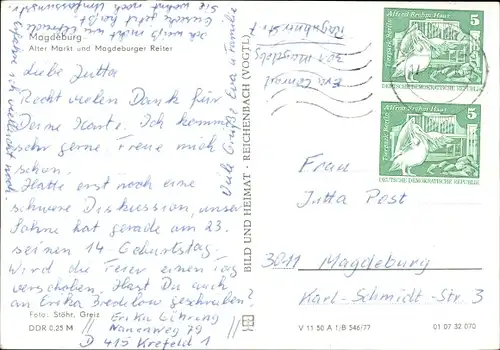 Magdeburg
Alter Markt und Magdeburger Reiter
Liebe Jutta
Recht vielen Dank für
Deine Karte. Ich komme
sehr gerne. Freue mich
schon.
Hatte erst noch eine
schwere Diskussion, unser
Sohne hat gerade am 23.
seinen 14. Geburtstag.
Wird die Feier einen Tag
verschoben. Hast Du auch
an Erika Bredelow geschrieben?
Foto: Stöhr, Greiz
DDR 0,25 M
Erika Gührung
Nanenweg 79
D 415 Krefeld 1
Ich weiß nicht
wie sie jetzt heißt
Viele Grüße Eva u Familie
BILD UND HEIMAT · REICHENBACH (VOGTL)
Eva Conrad
301 Magdeb
Alfred Brehm Haus
Tierpark Berlin
5
DEUTSCHE DEMOKRATISCHE REPUBLIK
Alfred Brehm Haus
Tierpark Berlin
5
DEUTSCHE DEMOKRATISCHE REPUBLIK
Frau
Jutta Post
3011 Magdeburg
Karl-Schmidt-Str. 3
V 11 50 A 1/B 546/77
01 07 32 070